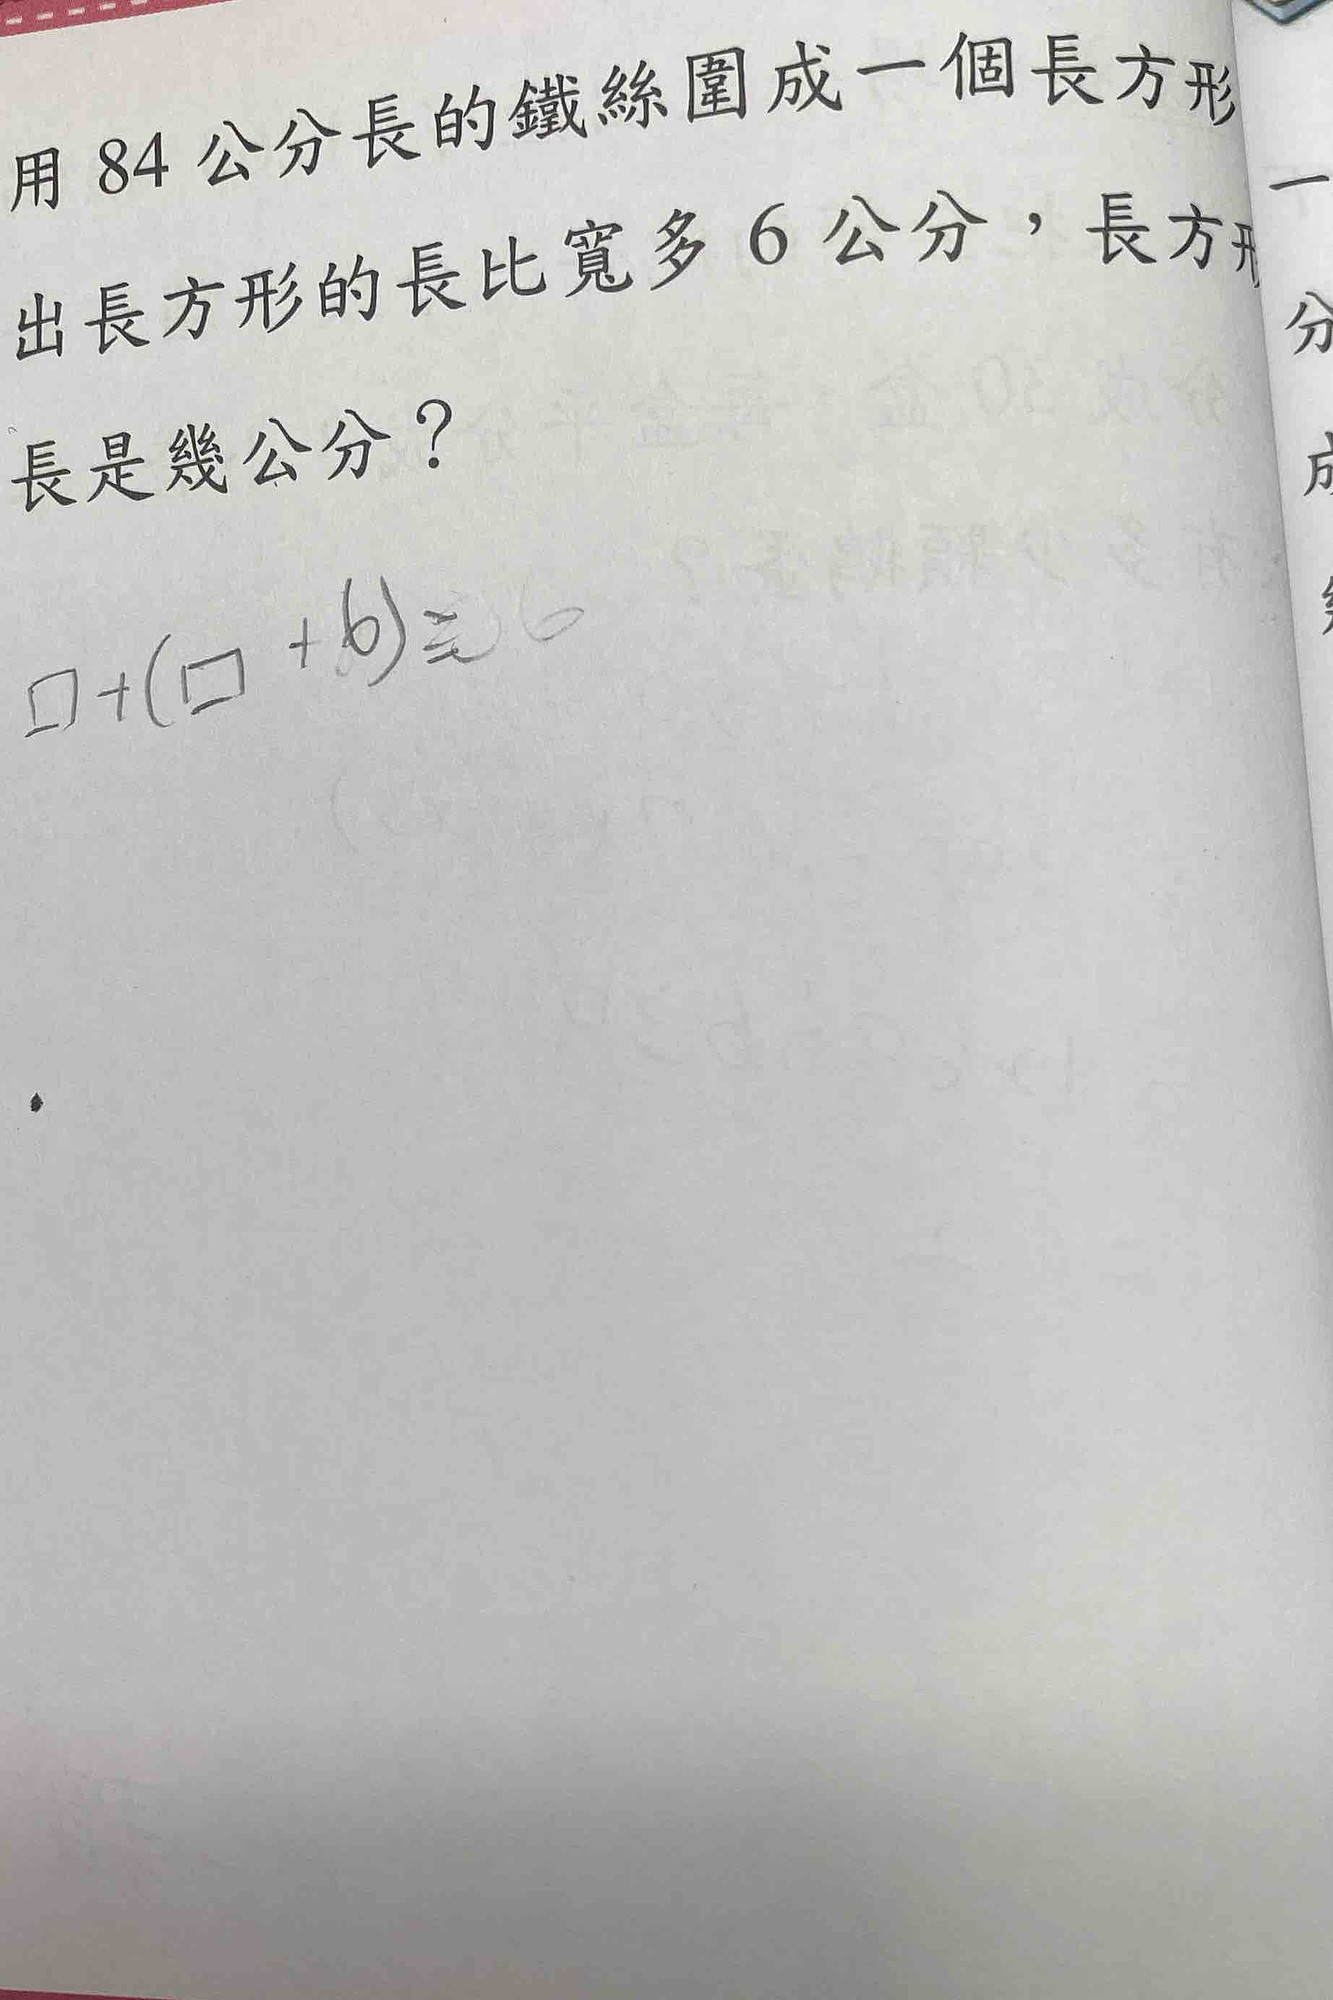 用 84 公分長的鐵絲圍成一個長方形
出長方形的長比寬多 6 公分，長方形
長是幾公分？
□+(□+6)=
一
分
成